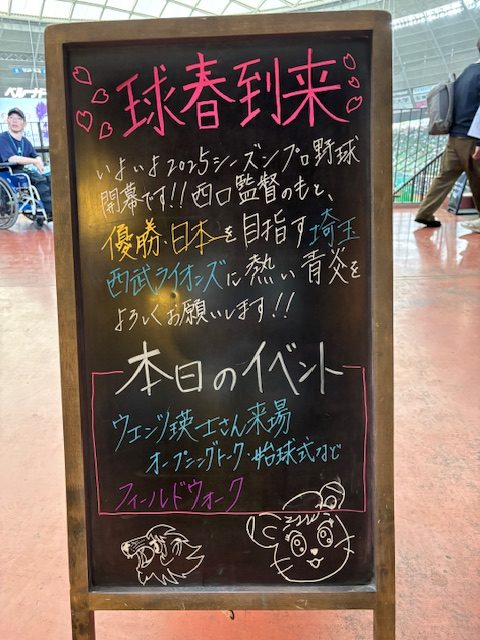 ベルーナ
球春到来
いよいよ2025シーズンプロ野球
開幕です!!西口監督のもと、
優勝・日本一を目指す埼玉
西武ライオンズに熱い青炎を
よろしくお願いします!!
本日のイベント
ウエンツ瑛士さん来場
オープニングトーク・始球式など
フィールドウォーク